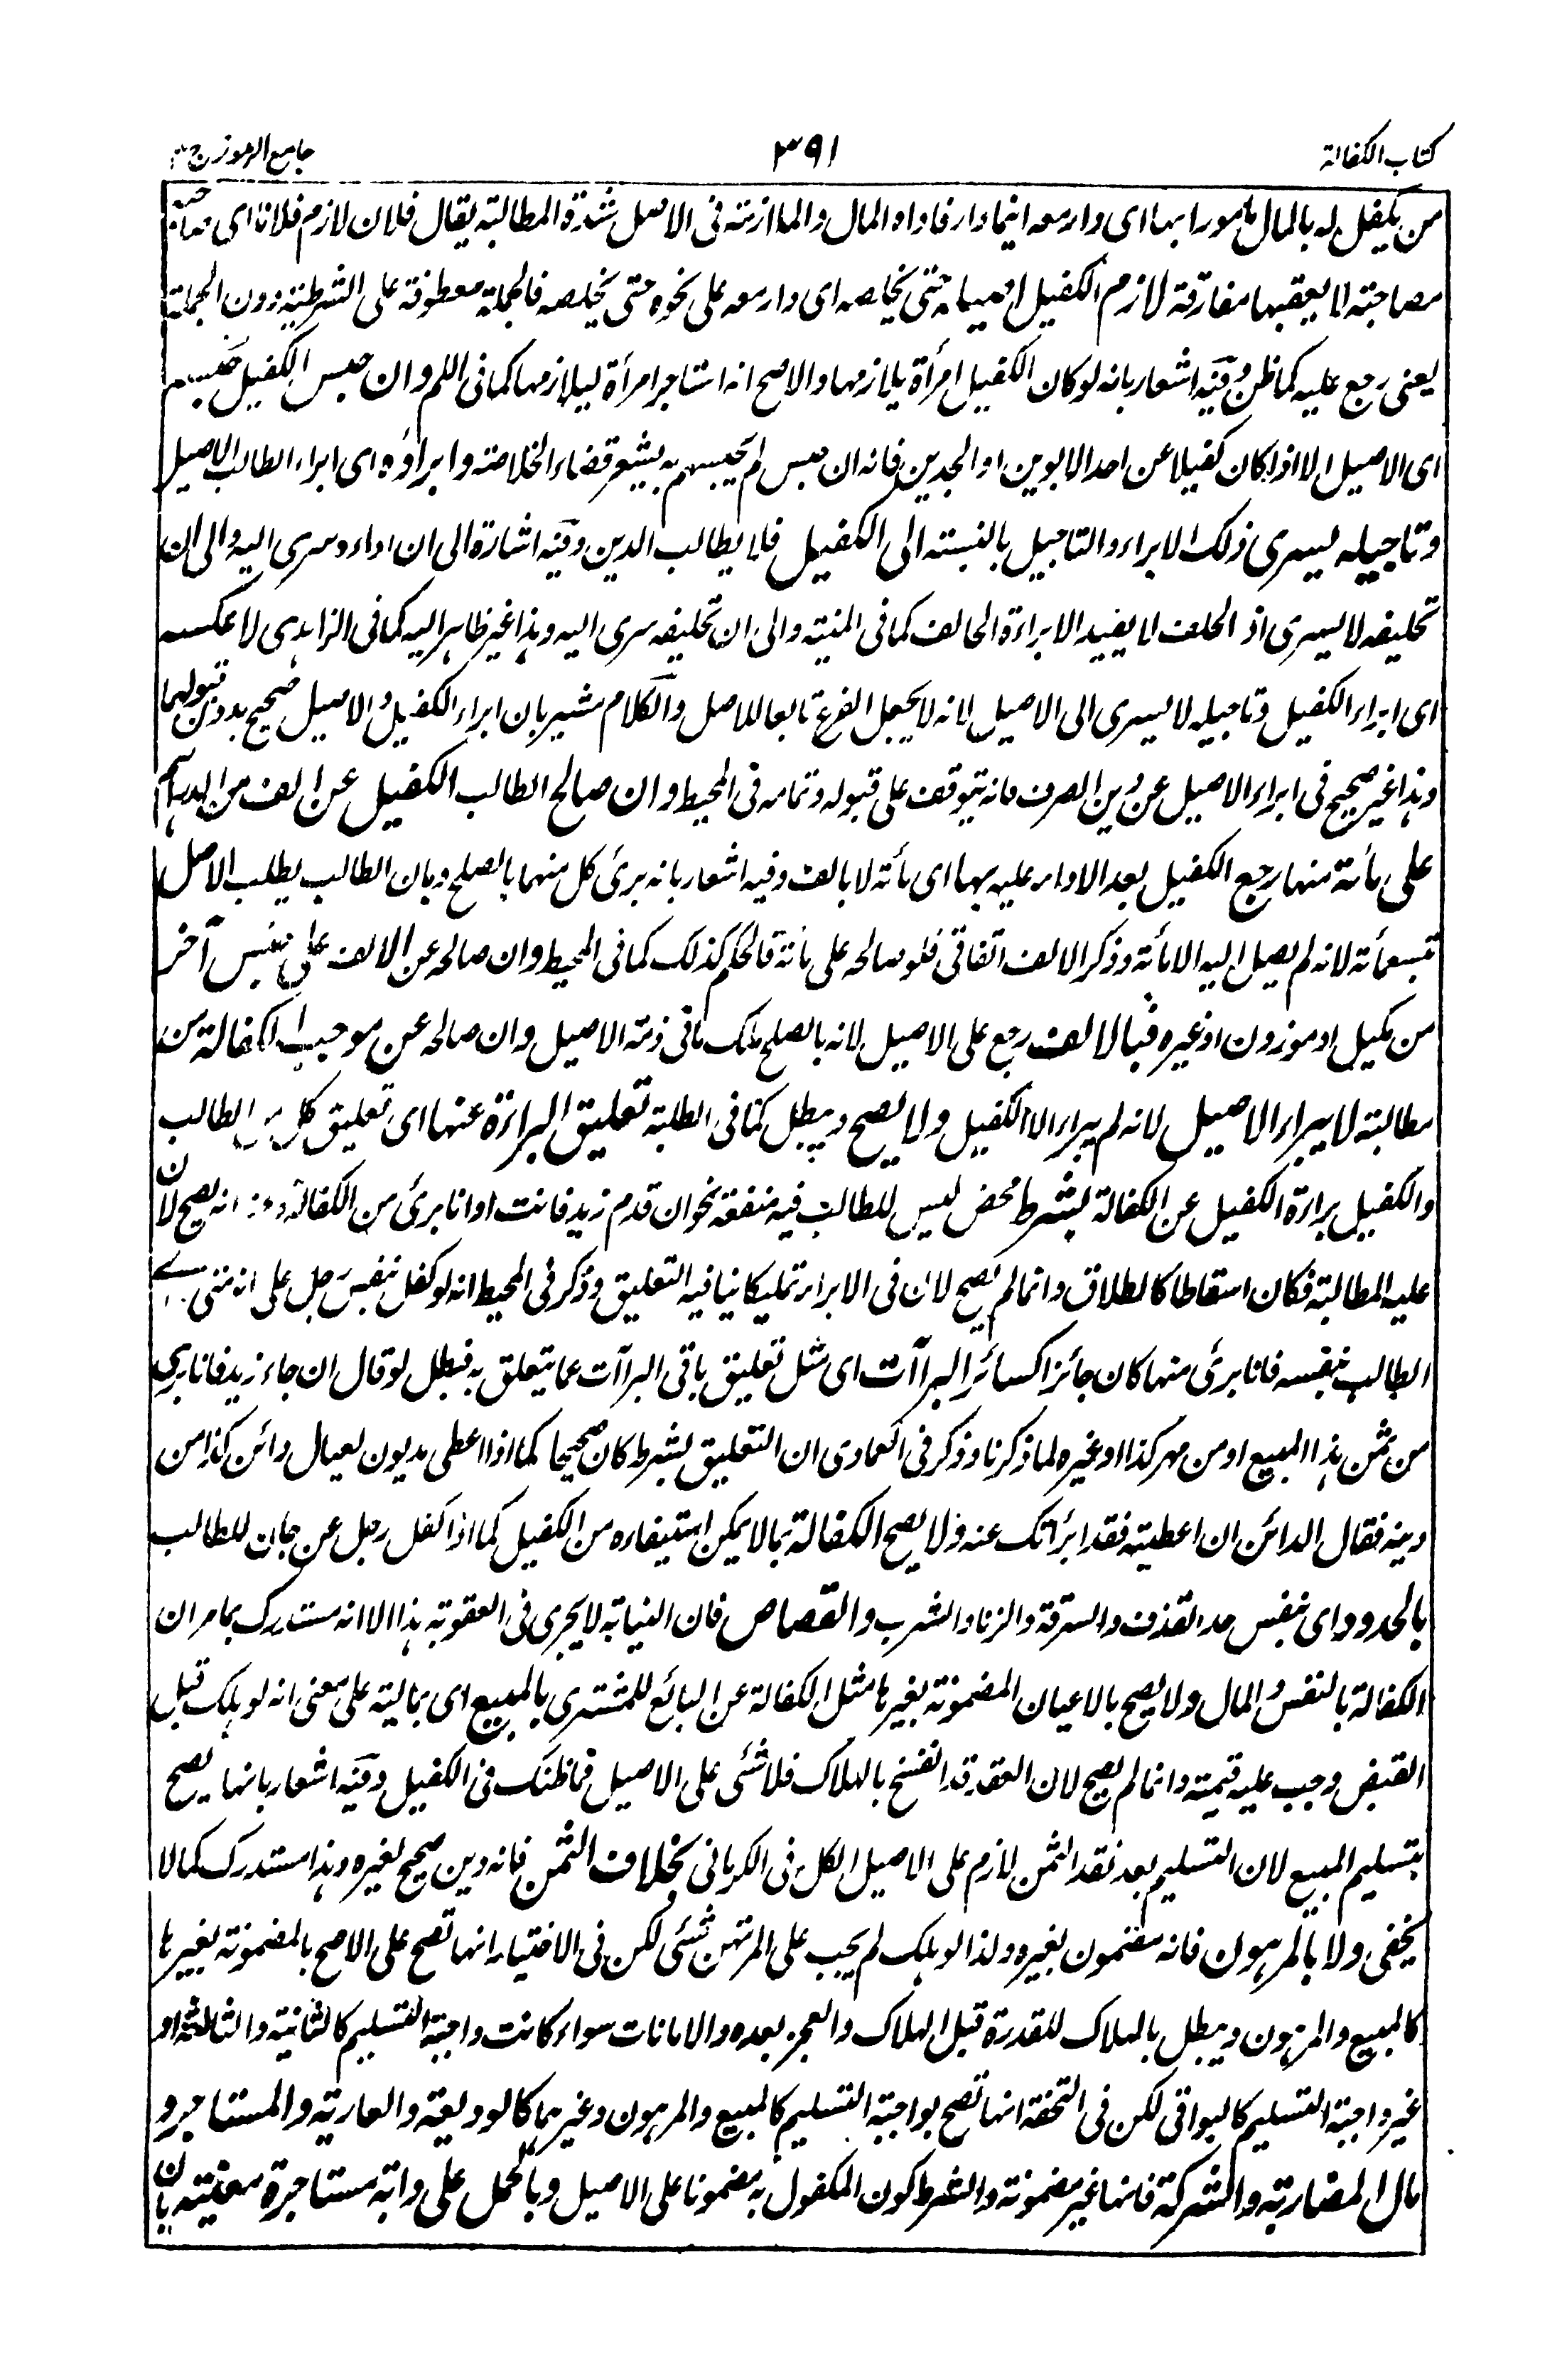 كتاب الكفالة
٣٩١
جامع الرموز ج
من يكفل له بالمال مامورا بها اى دار معه اينما دار فاداه المال والملازمة فى الاصل شدة المطالبة يقال فلان لازم فلانا اى
مصاحبته لا يعقبها مفارقة لازم الكفيل حتى يخلصه اى دار معه على نحوه حتى يخلصه فالجملة معطوفة على الشرطية دون الجملة
يعنى رجع عليه كما ظن وفيه اشعار بانه لو كان الكفيل امرأة يلازمها والاصح انه استاجر امرأة ليلازمها كما فى اللم وان حبس الكفيل حبسه
اى الاصيل الا اذا كان كفيلا عن احد الابوين او الجدين فانه ان حبس لم يحبسهم به يشعر قضاء الخلاصة وابراؤه اى ابراء الطالب الاصيل
وتاجيله يسرى ذلك الابراء والتاجيل بالنسبة الى الكفيل فلا يطالب الدين وفيه اشارة الى ان اداءه سرى اليه والى ان
تحليفه لا يسرى اذ الحلف لا يفيد الا براءة الحالف كما فى المنية والى ان تحليفه سرى اليه وهذا غير ظاهر اليه كما فى الزاهدى لا عكسه
اى ابراء الكفيل وتاجيله لا يسرى الى الاصيل لانه لا يجعل الفرع تابعا للاصل والكلام مشير بان ابراء الكفيل والاصيل صحيح بدون قبولهما
وهذا غير صحيح فى ابراء الاصيل عن دين الصرف فانه يتوقف على قبوله وتمامه فى المحيط وان صالح الطالب الكفيل عن الف من الدراهم
على مأئة منها رجع الكفيل بعد الاداء عليه بها اى بمأئة لا بالف وفيه اشعار بانه برئ كل منهما بالصلح وبان الطالب يطلب الاصل
تسعمأئة لانه لم يصل اليه الا مأئة وذكر الالف اتفاقى فلو صالحه على مأئة فالحكم كذلك كما فى المحيط وان صالحه عن الالف على جنس آخر
من مكيل او موزون او غيره فبالالف رجع على الاصيل لانه بالصلح ملك ما فى ذمة الاصيل وان صالحه عن موجب الكفالة من
مطالبته لا يبراء الاصيل لانه لم يبراء الا الكفيل ولا يصح ويبطل كما فى الطلبة تعليق البراءة عنها اى تعليق كل من الطالب
والكفيل براءة الكفيل عن الكفالة بشرط محض ليس للطالب فيه منفعة نحو ان قدم زيد فانت او انا برئ من الكفالة انه يصح لان
عليه المطالبة فكان اسقاطا كالطلاق وانما لم يصح لان فى الابراء تمليكا ينافيه التعليق وذكر فى المحيط انه لو كفل بنفس رجل على انه متى
الطالب بنفسه فانا برئ منها كان جائزا كسائر البراآت اى مثل تعليق باقى البراآت عما يتعلق به فبطل لو قال ان جاء زيد فانا برى
من ثمن هذا المبيع او من مهر كذا او غيره لما ذكرنا وذكر فى العمادى ان التعليق بشرط كان صحيحا كما اذا اعطى مديون لعيال دائن كذا من
دينه فقال الدائن ان اعطيته فقد ابرأتك عنه ولا يصح الكفالة بما لا يمكن استيفاءه من الكفيل كما اذا كفل رجل عن جان للطالب
بالحدود اى بنفس حد القذف والسرقة والزنا والشرب والقصاص فان النيابة لا يجرى فى العقوبة هذا الا انه مستدرك بما مر ان
الكفالة بالنفس والمال ولا يصح بالاعيان المضمونة بغيرها مثل الكفالة عن البائع للمشترى بالمبيع اى بماليته على معنى انه لو هلك قبل
القبض وجب عليه قيمته وانما لم يصح لان العقد قد انفسخ بالهلاك فلا شئى على الاصيل فما ظنك فى الكفيل وفيه اشعار بانها يصح
بتسليم المبيع لان التسليم بعد نقد الثمن لازم على الاصيل الكل فى الكرمانى بخلاف الثمن فانه دين صحيح لغيره وهذا مستدرك كما لا
يخفى ولا بالمرهون فانه مضمون بغيره ولذا لو هلك لم يجب على المرتهن شئى لكن فى الاختيار انها تصح على الاصح بالمضمونة بغيرها
كالمبيع والمرهون ويبطل بالهلاك للقدرة قبل الهلاك والعجز بعده والامانات سواء كانت واجبة التسليم كالثانية والثالثة او
غير واجبة التسليم كالبواقى لكن فى التحفة انها تصح بواجبة التسليم كالمبيع والمرهون وغيرهما كالوديعة والعارية والمستاجر و
مال المضاربة والشركة فانها غير مضمونة والشرط كون المكفول به مضمونا على الاصيل وبالحمل على دابة مستاجرة معينة بان